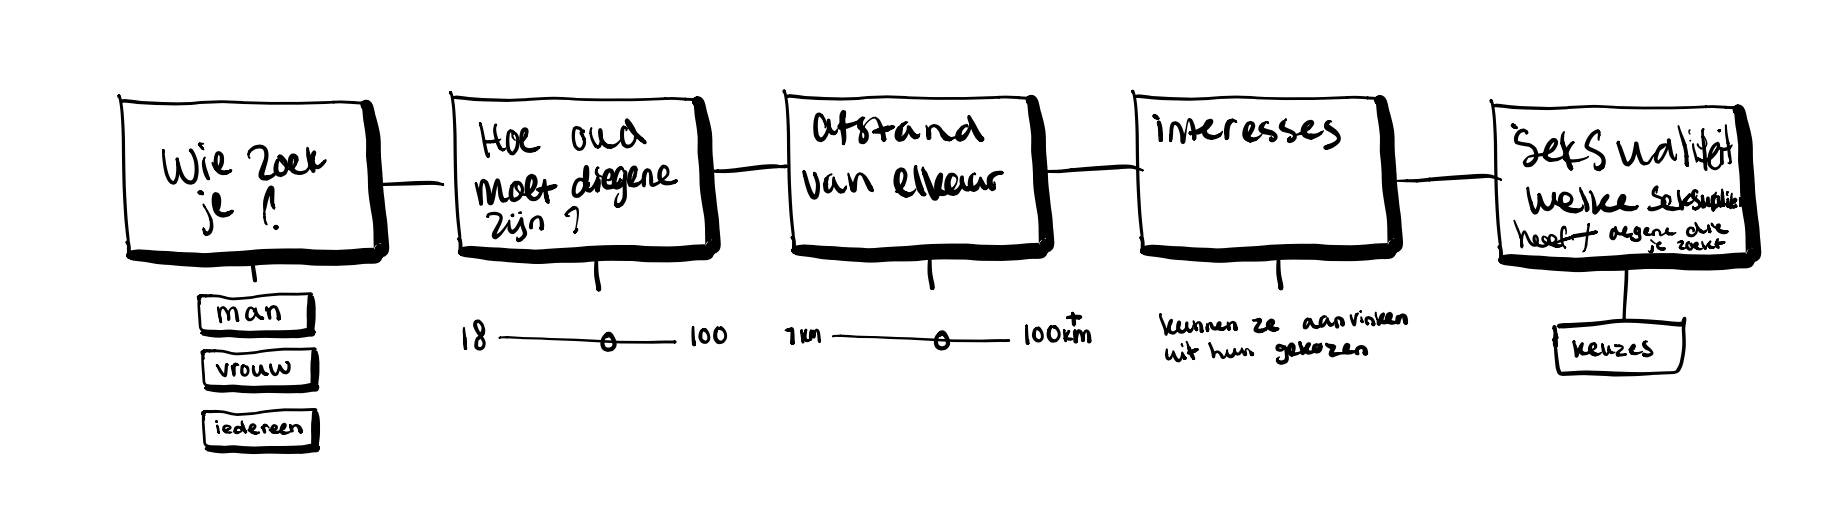 Wie zoek
je ?
man
vrouw
iedereen
Hoe oud
moet diegene
zijn ?
18
100
afstand
van elkaar
1km
100km+
interesses
kunnen ze aanvinken
uit hun gekozen
Seksualiteit
welke seksualiteit
heeft degene die
je zoekt
keuzes